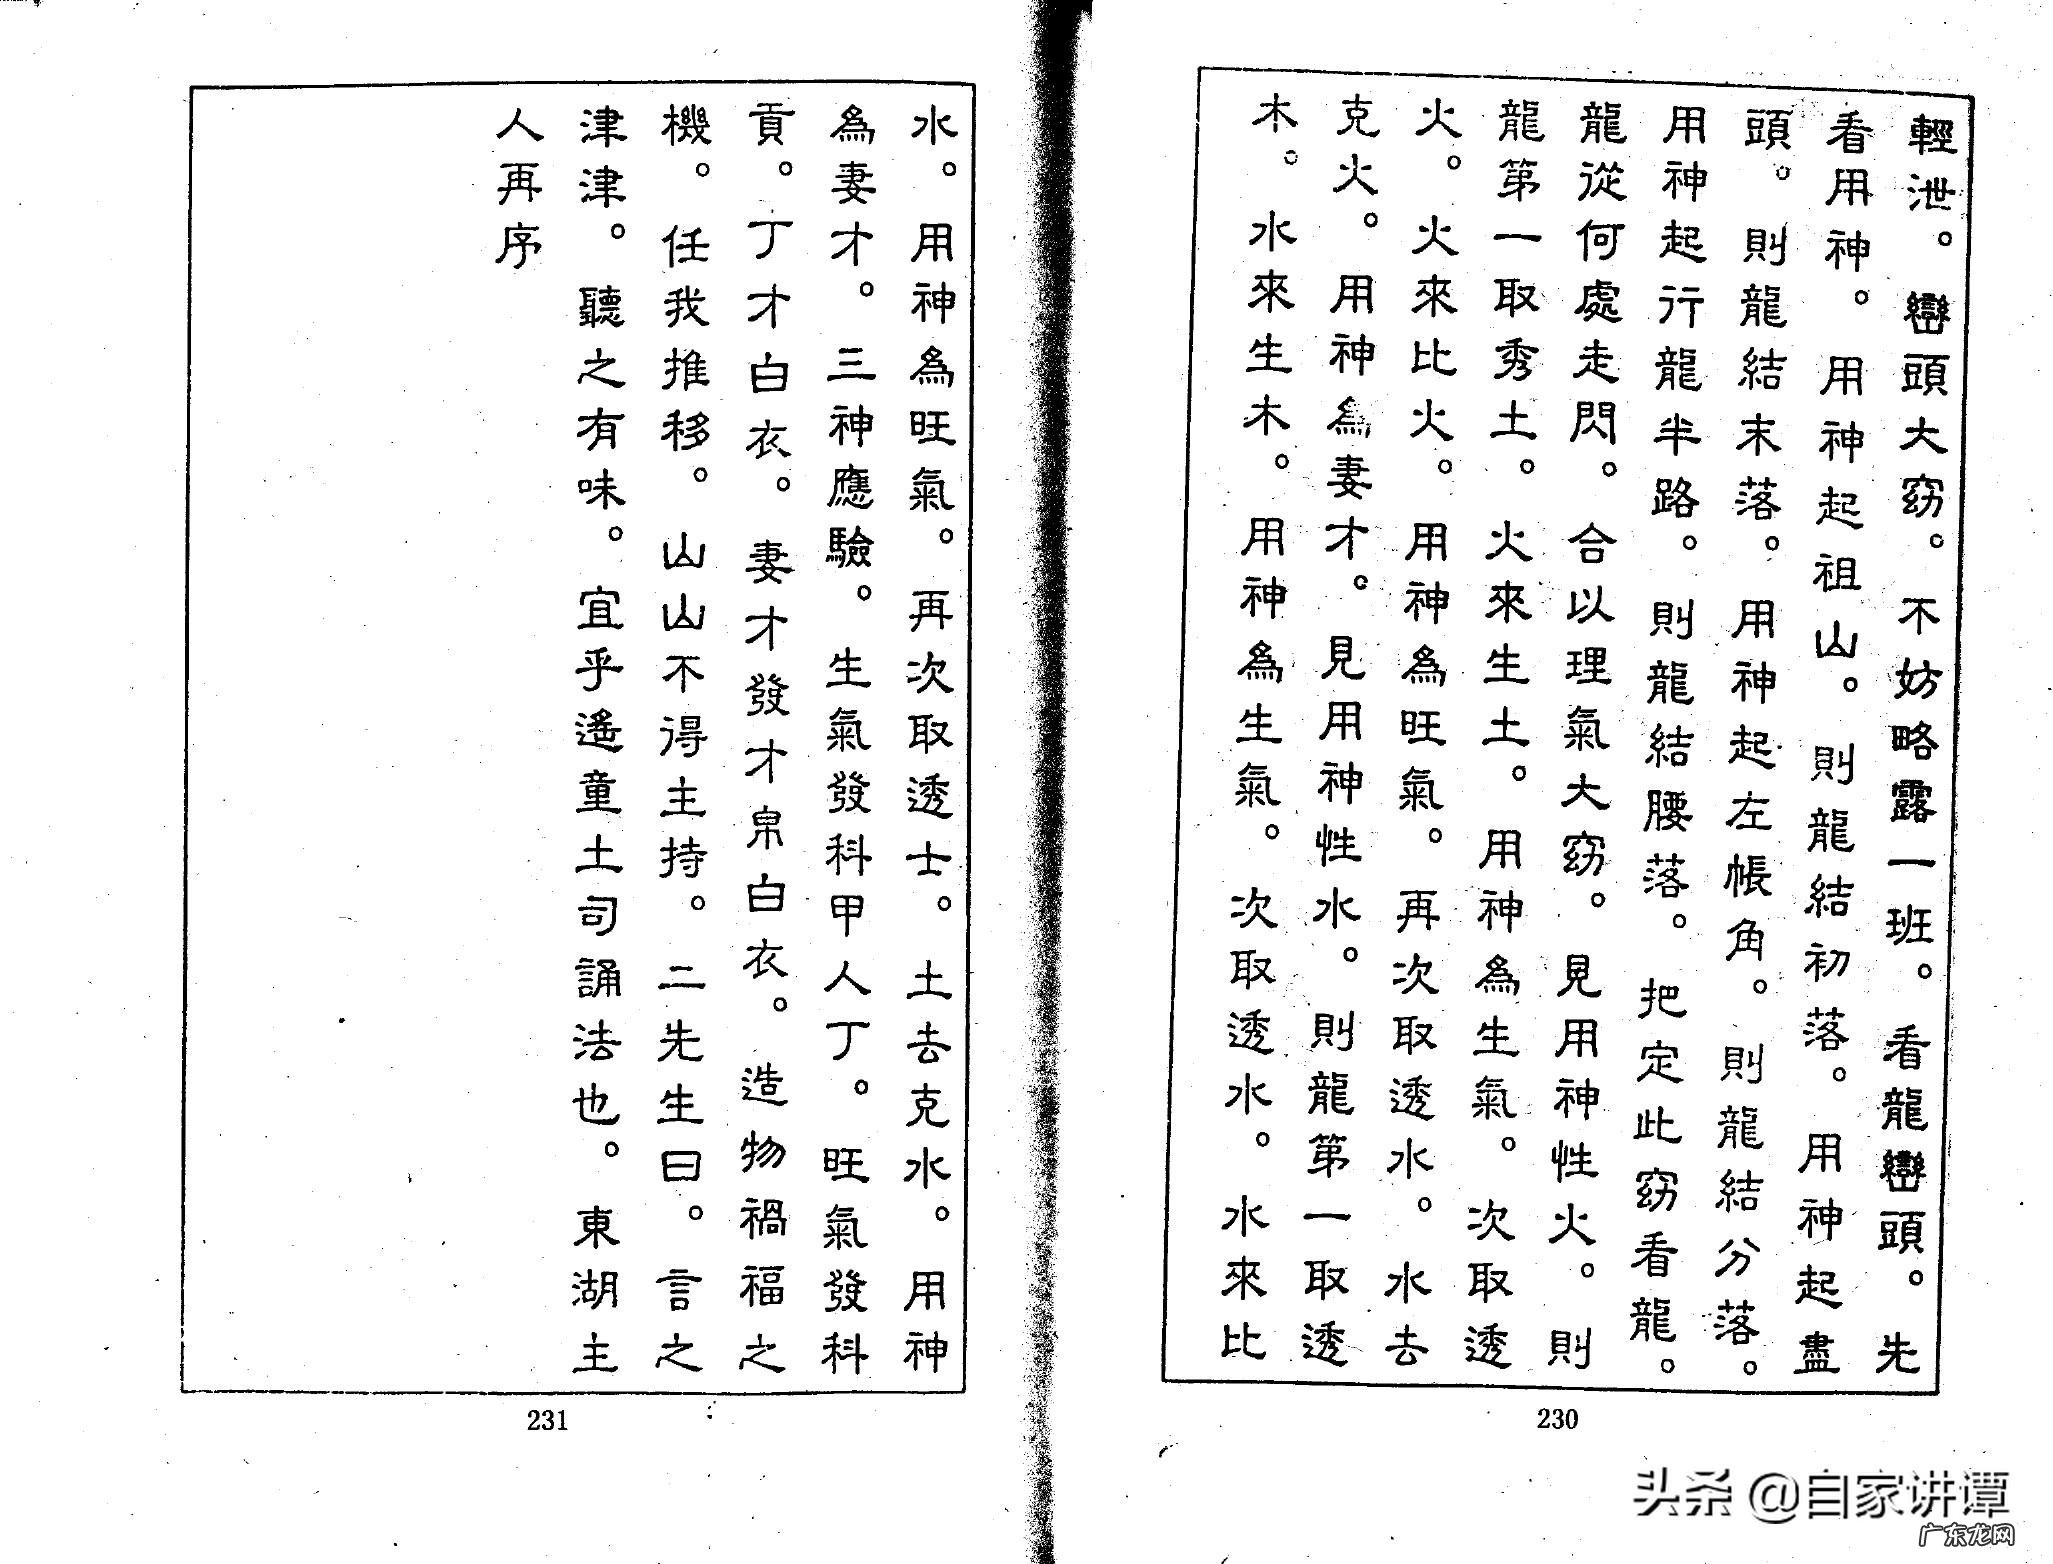 輕泄。巒頭大竅。不妨略露一班。看龍巒頭。先
看用神。用神起祖山。則龍結初落。用神起盡
頭。則龍結末落。用神起左帳角。則龍結分落。
用神起行龍半路。則龍結腰落。把定此竅看龍。
龍從何處走閃。合以理氣大竅。見用神性火。則
龍第一取秀土。火來生土。用神為生氣。次取透
火。火來比火。用神為旺氣。再次取透水。水去
克火。用神為妻才。見用神性水。則龍第一取透
木。水來生木。用神為生氣。次取透水。水來比
230
水。用神為旺氣。再次取透士。土去克水。用神
為妻才。三神應驗。生氣發科甲人丁。旺氣發科
貢。丁才白衣。妻才發才帛白衣。造物禍福之
機。任我推移。山山不得主持。二先生曰。言之
津津。聽之有味。宜乎遙童土司誦法也。東湖主
人再序
231
头条 @自家讲谭
广东龙网